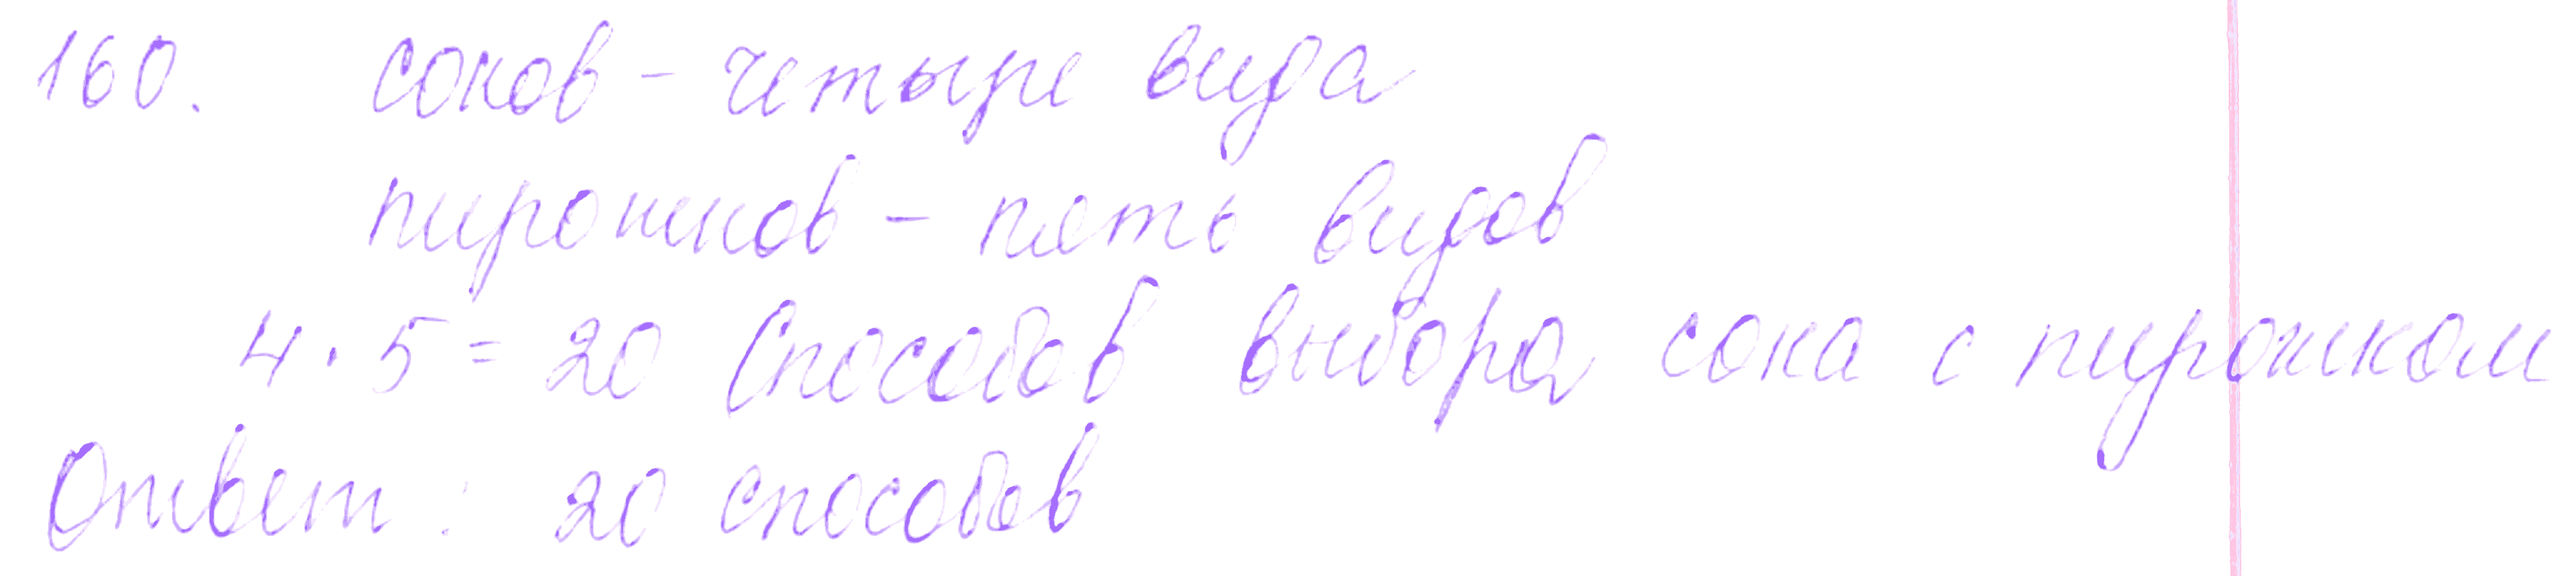 160. соков - четыре вида
пирожков - пять видов
4 · 5 = 20 способов выбора сока с пирожком
Ответ: 20 способов